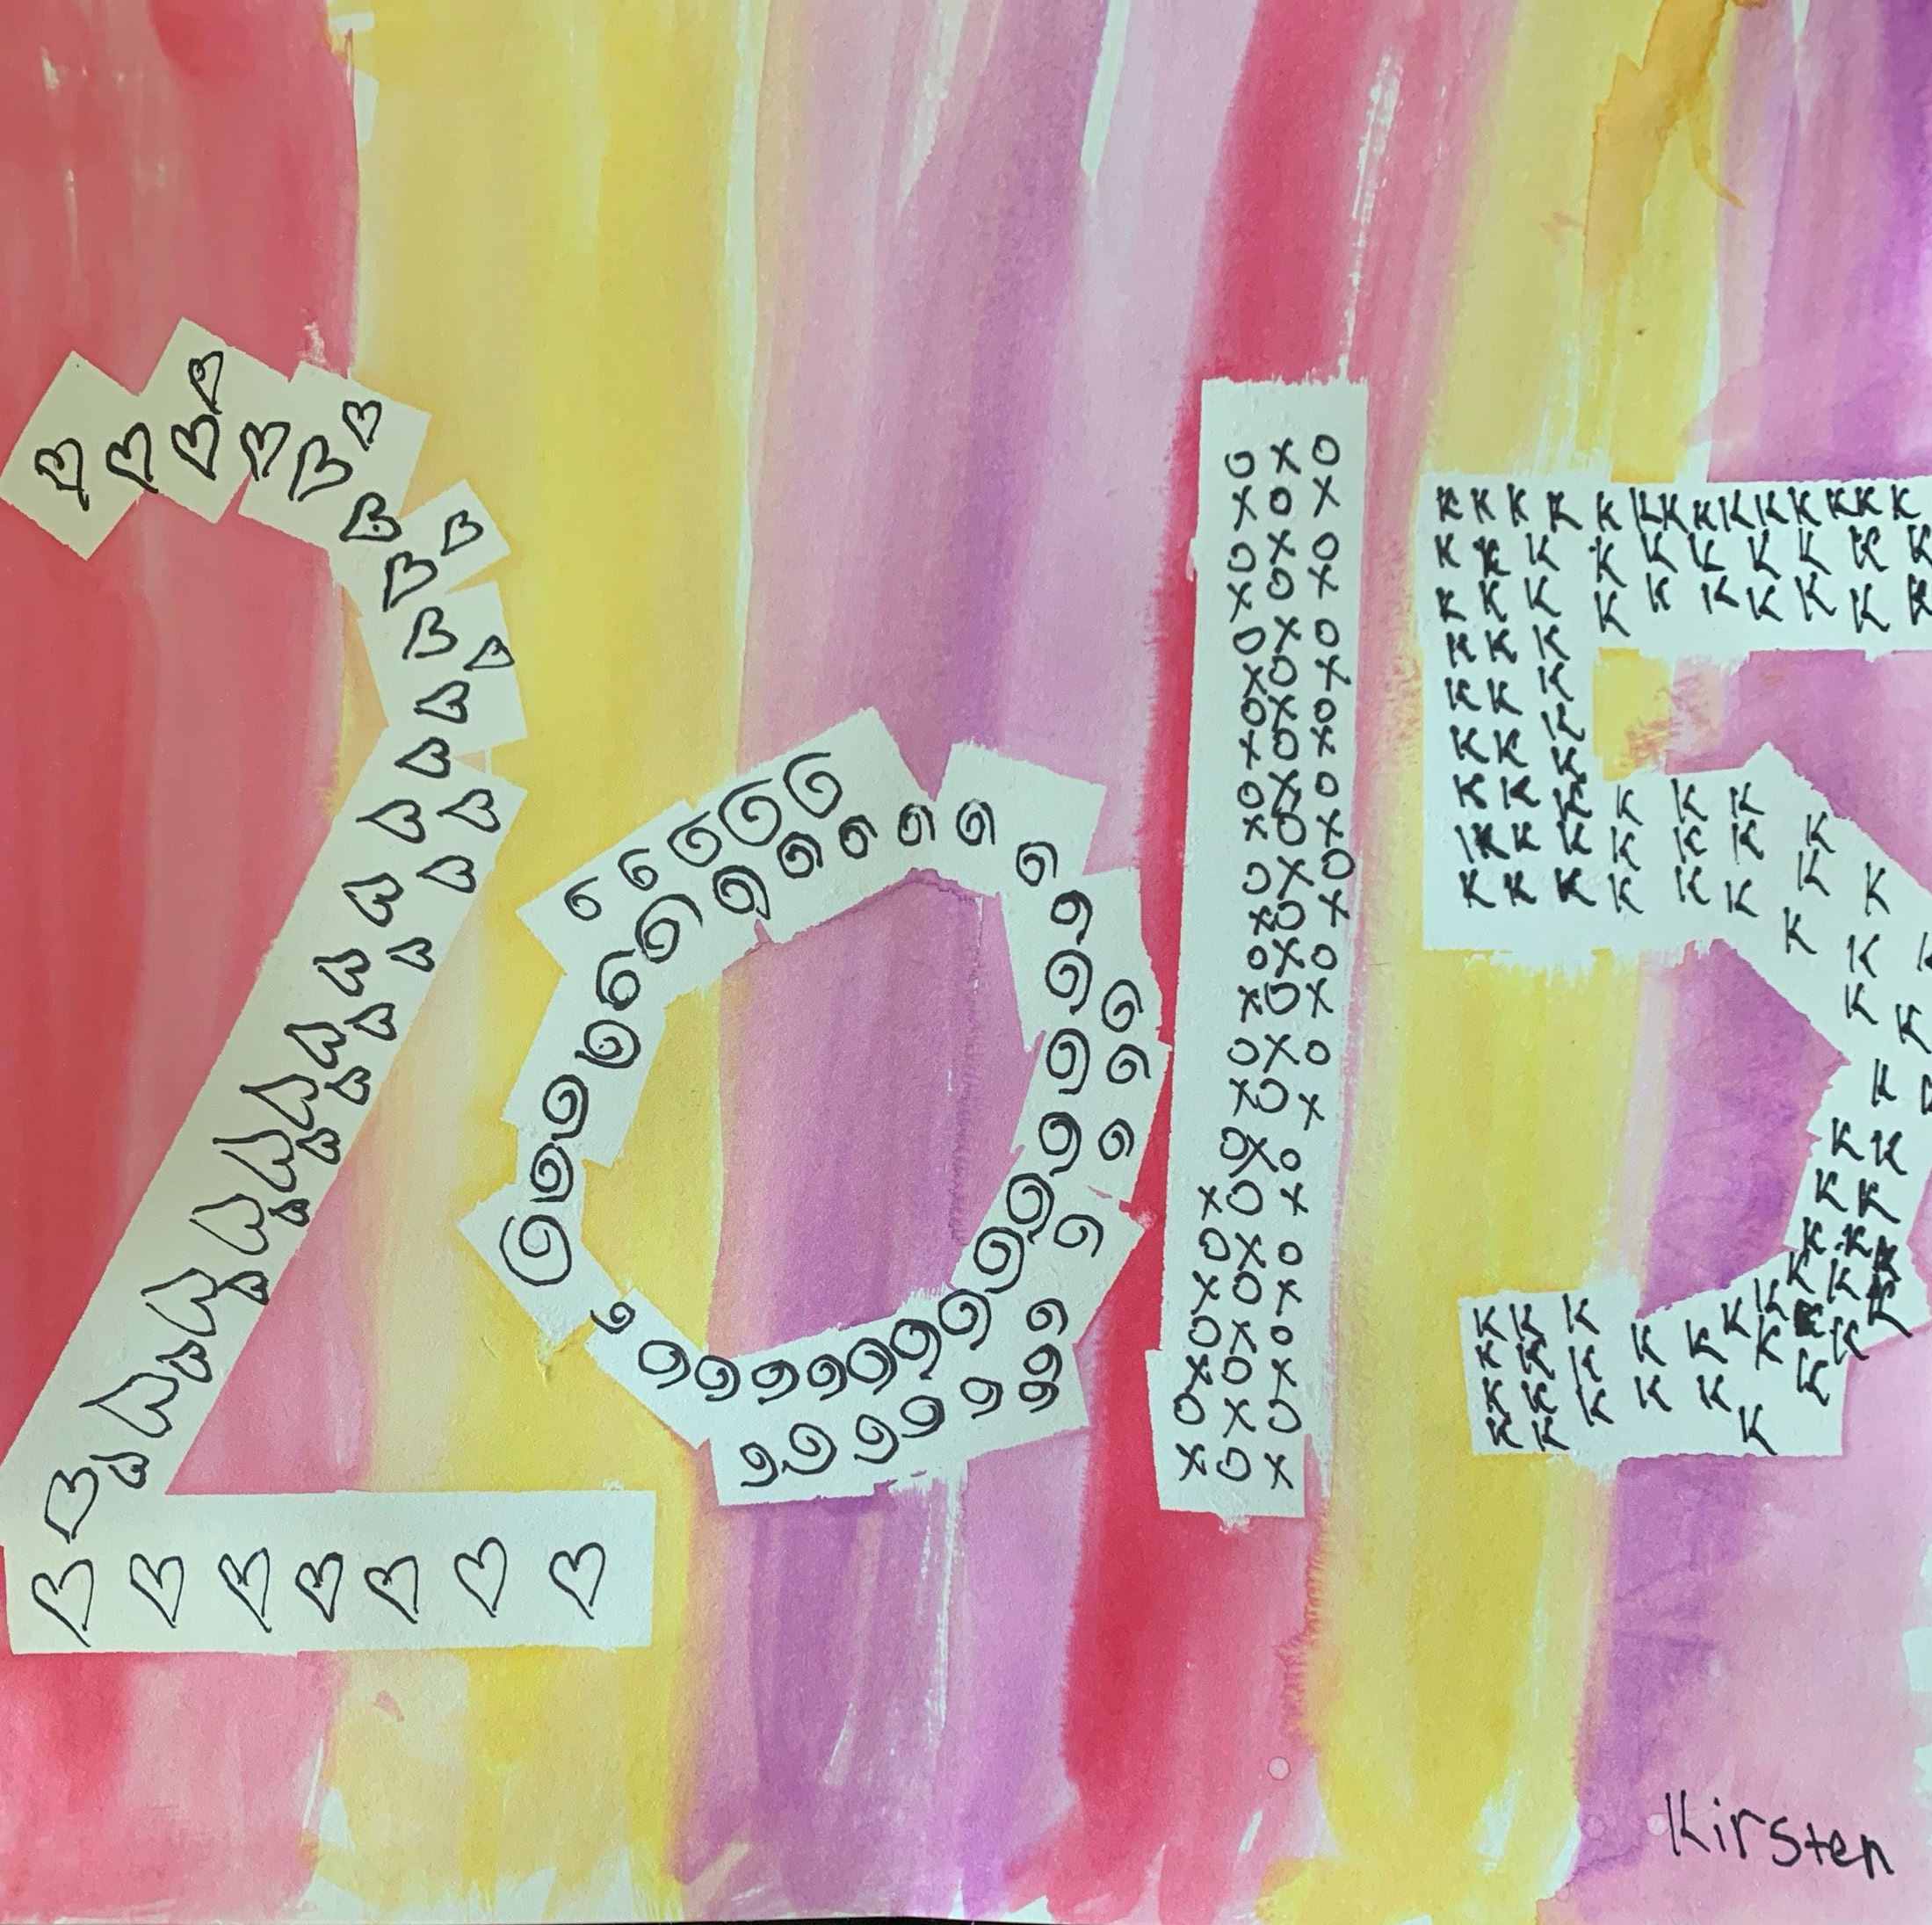 2015
Kirsten